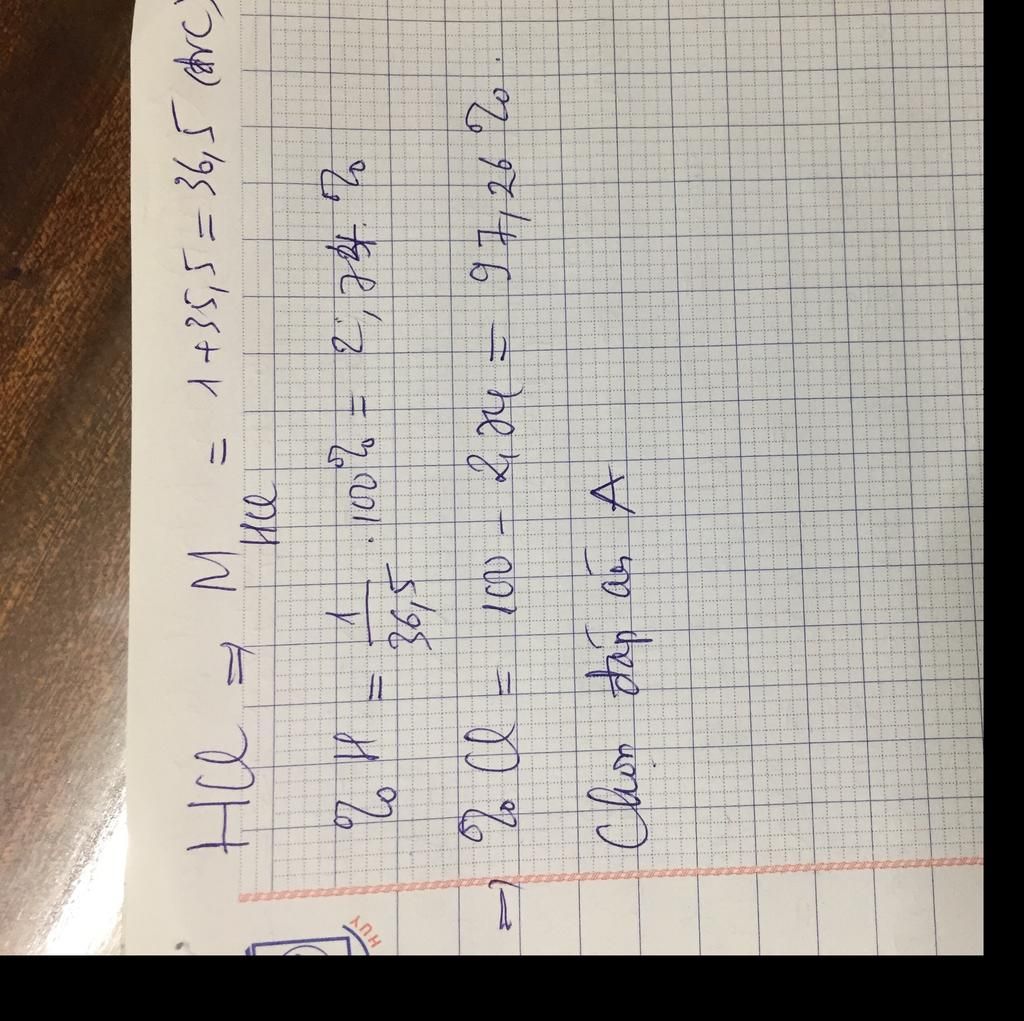 HCl ⇒ M HCl = 1 + 35,5 = 36,5 (đvC)
% H = 1/36,5 . 100% = 2,74 %
⇒ % Cl = 100 - 2,74 = 97,26 %.
Chọn đáp án A
HUY